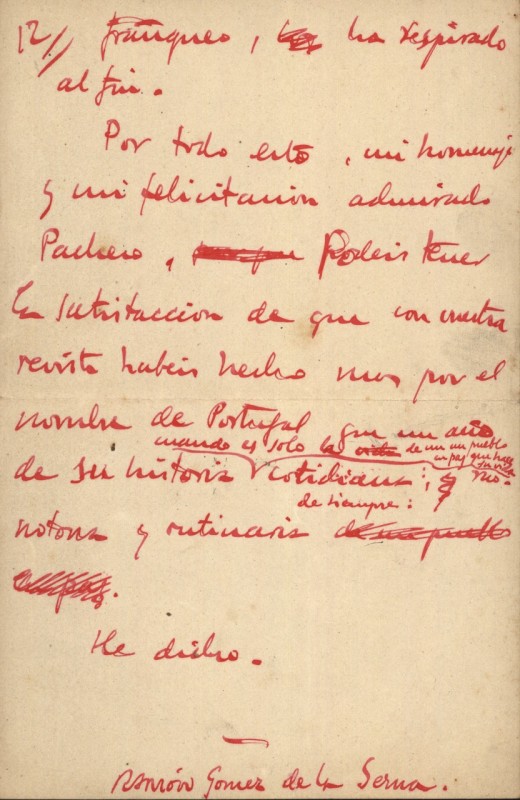 12// franqueo, ha respirado
al fin.
Por todo esto, mi homenaje
y mi felicitacion admirado
Pacheco, Podeis tener
la satisfaccion de que con vuestra
revista habeis hecho mas por el
nombre de Portugal que un año
cuando es solo la vida de un pueblo
en paz que hace su vida
de su historia cotidiana;
de siempre:
notona y rutinaria
He dicho.
Ramón Gomez de la Serna.